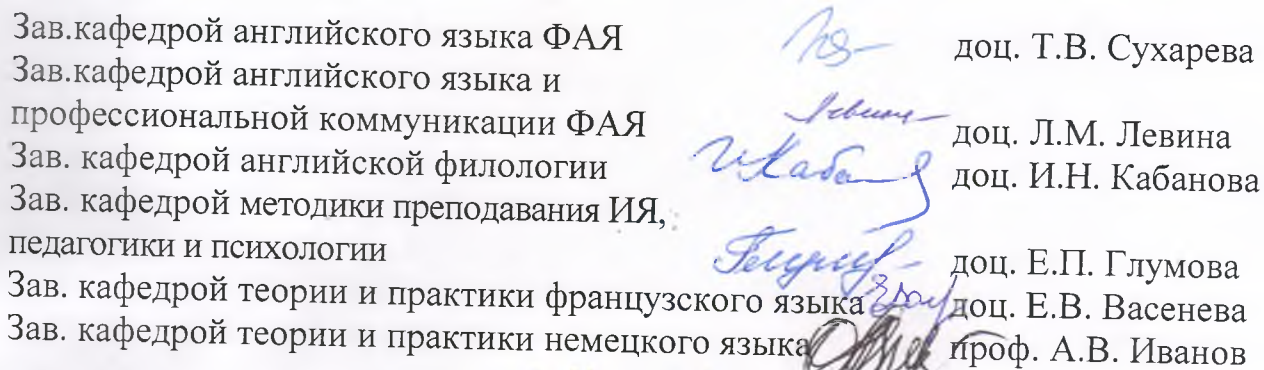 Зав.кафедрой английского языка ФАЯ доц. Т.В. Сухарева
Зав.кафедрой английского языка и
профессиональной коммуникации ФАЯ доц. Л.М. Левина
Зав. кафедрой английской филологии доц. И.Н. Кабанова
Зав. кафедрой методики преподавания ИЯ,
педагогики и психологии доц. Е.П. Глумова
Зав. кафедрой теории и практики французского языка доц. Е.В. Васенева
Зав. кафедрой теории и практики немецкого языка проф. А.В. Иванов